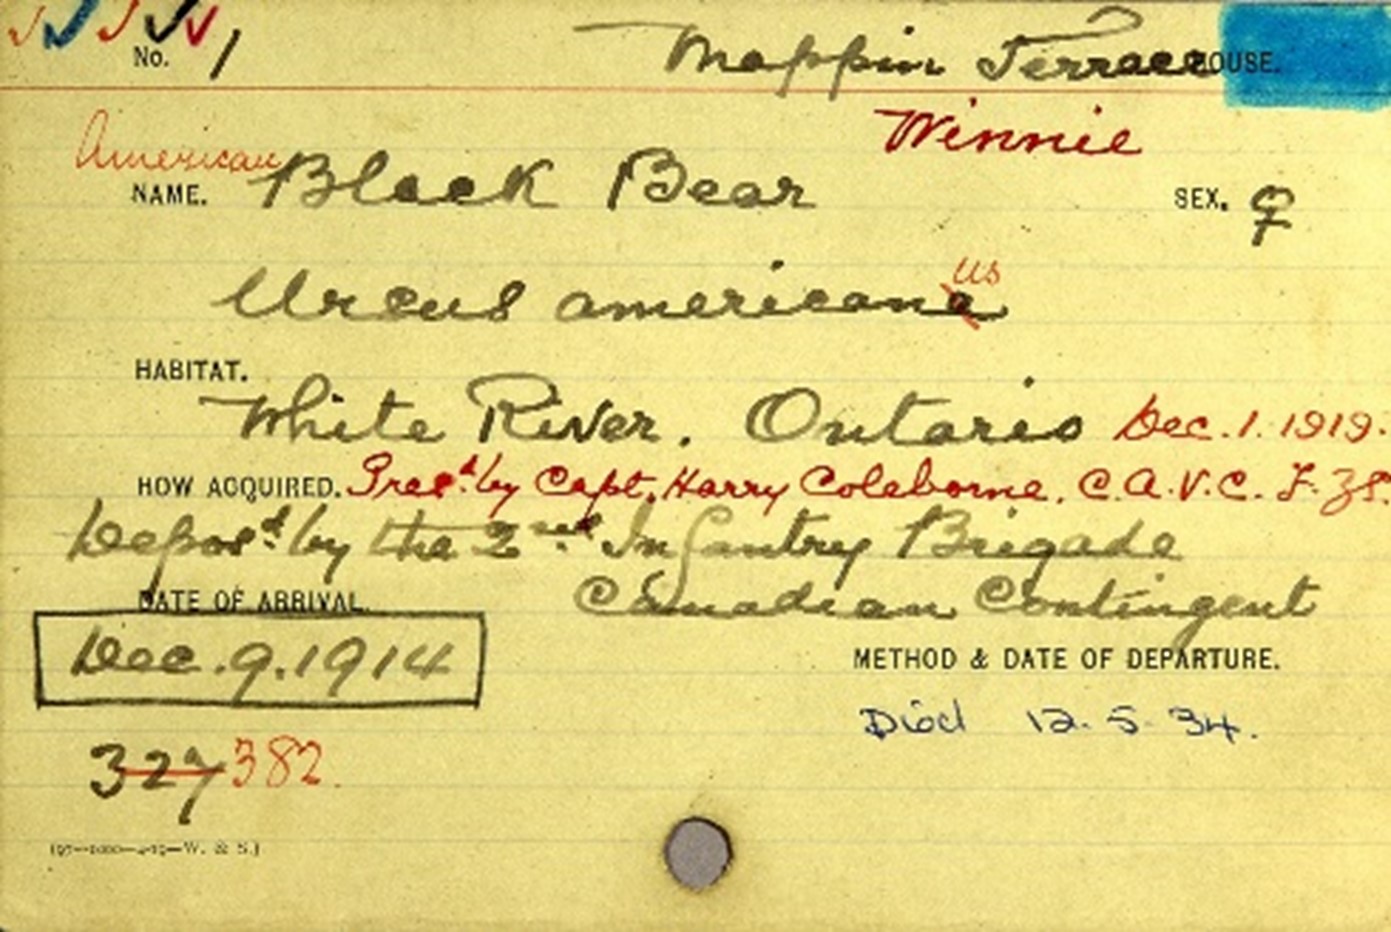 No. 1 Mappin Terrace HOUSE.
Winnie
American Black Bear
NAME. SEX. ♀
Ursus americana us
HABITAT.
White River. Ontario Dec. 1. 1919.
HOW ACQUIRED. Pres.d by Capt. Harry Coleborne, C.A.V.C. F.ZS.
Depos.d by the 2nd Infantry Brigade
DATE OF ARRIVAL. Canadian Contingent
Dec. 9. 1914
METHOD & DATE OF DEPARTURE.
Died 12. 5. 34.
327 382.
(97—1000—4-19—W. & S.)